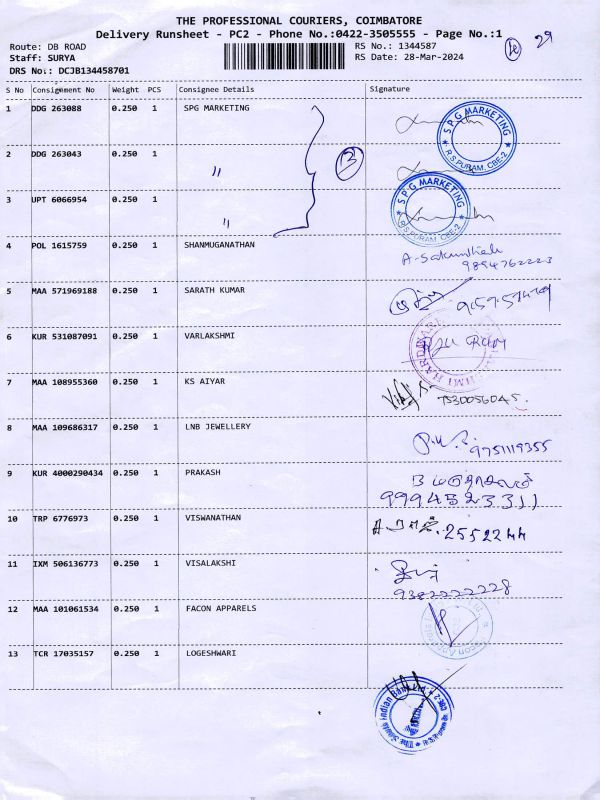 THE PROFESSIONAL COURIERS, COIMBATORE
Delivery Runsheet - PC2 - Phone No.:0422-3505555 - Page No.:1
Route: DB ROAD RS No.: 1344587
Staff: SURYA RS Date: 28-Mar-2024
DRS No.: DCJB134458701
29
S No Consignment No Weight PCS Consignee Details Signature
1 DDG 263088 0.250 1 SPG MARKETING
SPG MARKETING R.S.PURAM, CBE-2
2 DDG 263043 0.250 1 〃
13
3 UPT 6066954 0.250 1 〃
SPG MARKETING R.S.PURAM, CBE-2
4 POL 1615759 0.250 1 SHANMUGANATHAN
9894762223
5 MAA 571969188 0.250 1 SARATH KUMAR
6 KUR 531087091 0.250 1 VARLAKSHMI
7 MAA 108955360 0.250 1 KS AIYAR
7530056045
8 MAA 109686317 0.250 1 LNB JEWELLERY
9751119355
9 KUR 4000290434 0.250 1 PRAKASH
9994523311
10 TRP 6776973 0.250 1 VISWANATHAN
2552244
11 IXM 506136773 0.250 1 VISALAKSHI
9382222228
12 MAA 101061534 0.250 1 FACON APPARELS
13 TCR 17035157 0.250 1 LOGESHWARI
The South Indian Bank Ltd